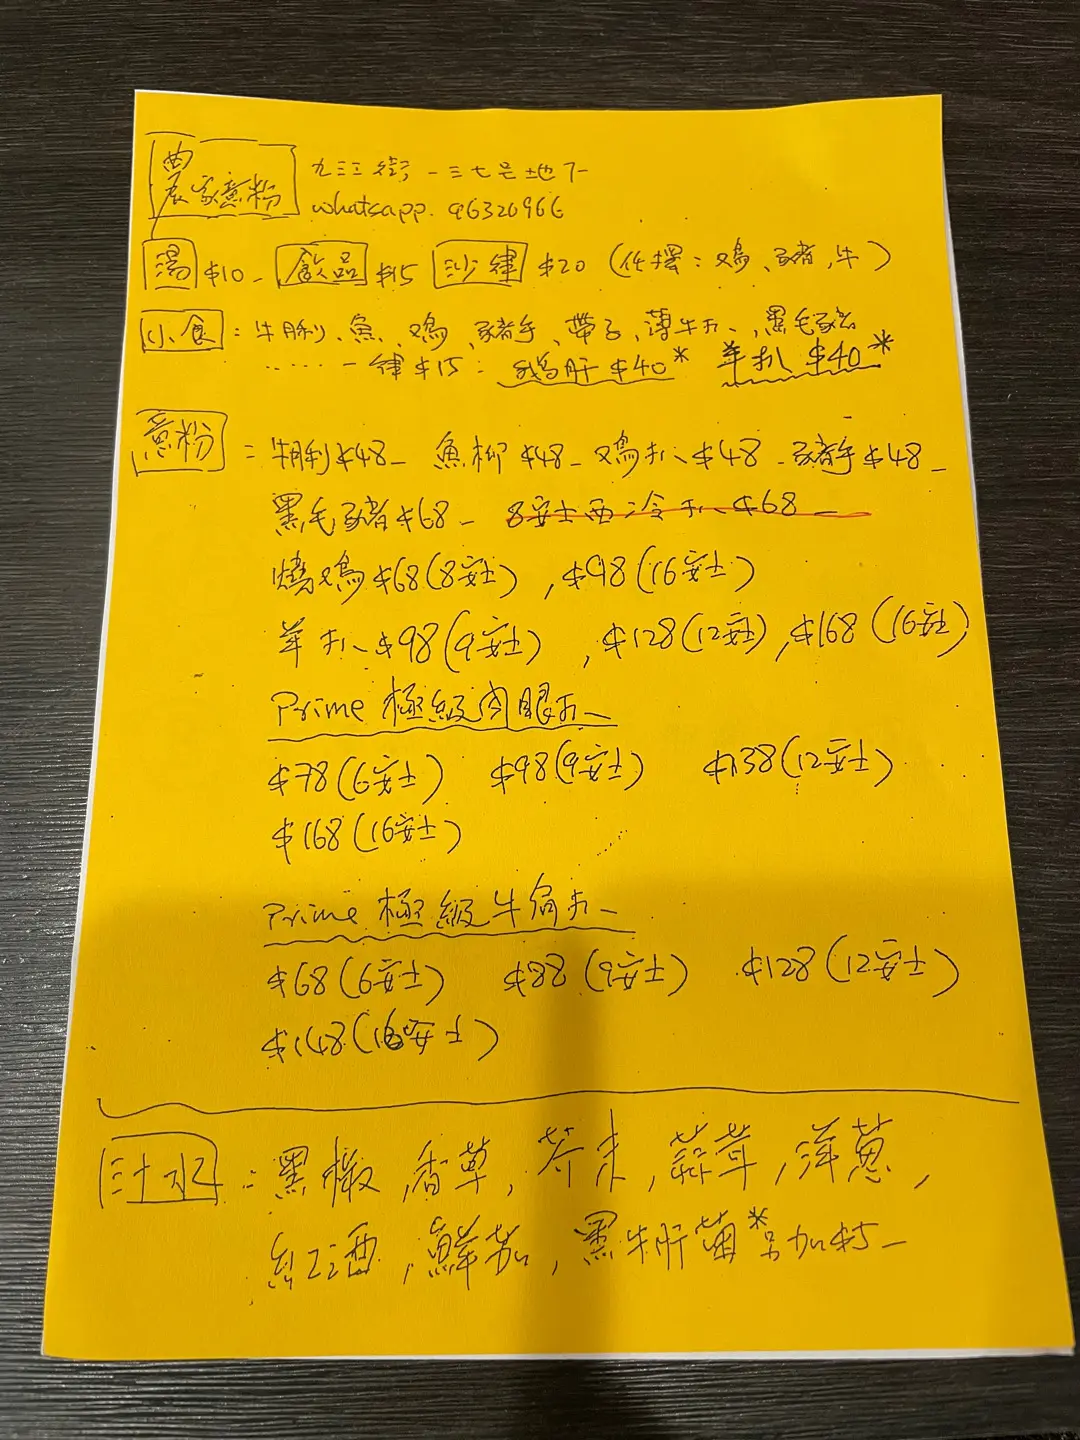 農家意粉 九江街一三七号地下
whatsapp. 96320966
湯 $10- 飲品 $15 沙律 $20 (任擇：鸡、豬、牛)
小食：牛脷、魚、鸡、豬手、帶子、薄牛扒、黑毛豬
……一律$15：鵝肝$40* 羊扒$40*
意粉：牛脷$48- 魚柳$48- 鸡扒$48- 豬手$48-
黑毛豬$68- 8安士西冷扒$68-
燒鸡$68(8安士), $98(16安士)
羊扒$98(9安士), $128(12安士), $168(16安士)
Prime 極級肉眼扒
$78(6安士) $98(9安士) $138(12安士)
$168(16安士)
Prime 極級牛扒
$68(6安士) $88(9安士) $128(12安士)
$148(16安士)
汁水：黑椒,香草,芥末,蒜茸,洋蔥,
紅酒,鮮茄,黑牛肝菌*另加$5-